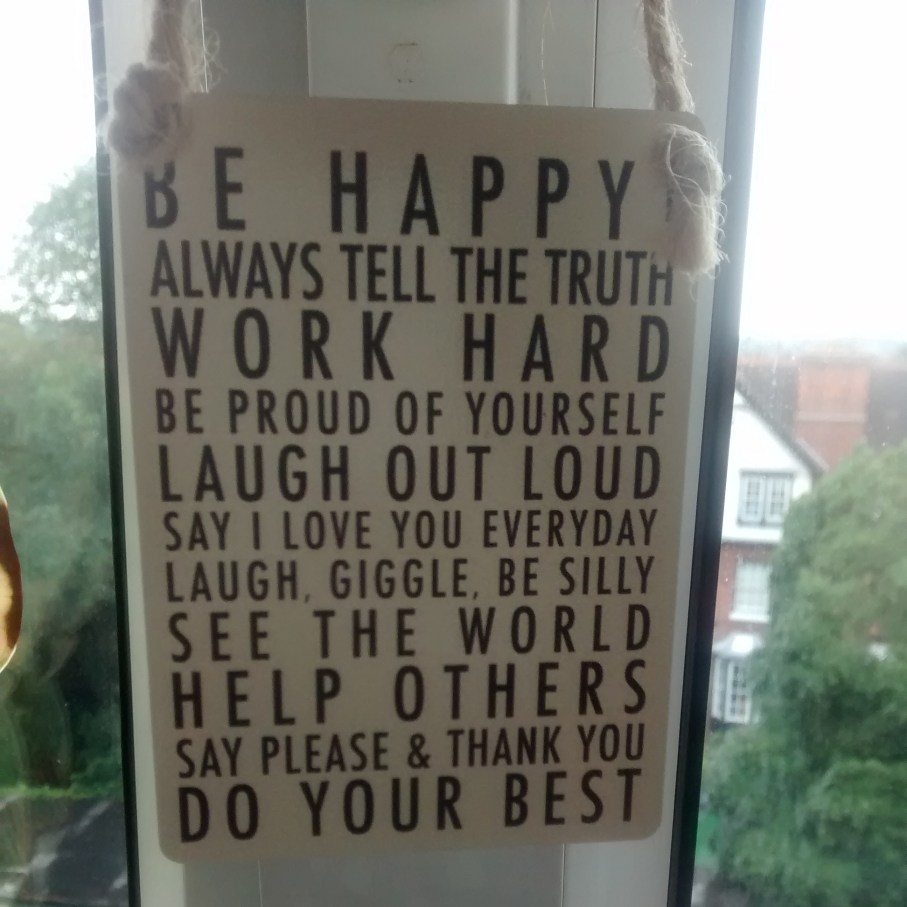 BE HAPPY!
ALWAYS TELL THE TRUTH
WORK HARD
BE PROUD OF YOURSELF
LAUGH OUT LOUD
SAY I LOVE YOU EVERYDAY
LAUGH, GIGGLE, BE SILLY
SEE THE WORLD
HELP OTHERS
SAY PLEASE & THANK YOU
DO YOUR BEST